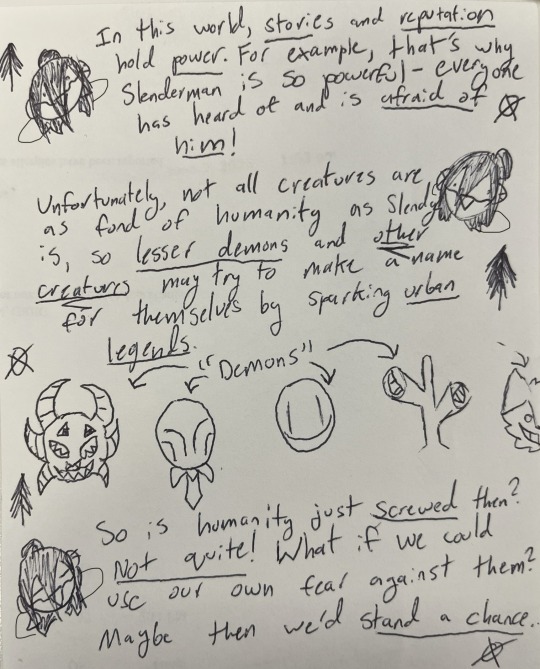 In this world, stories and reputation
hold power. For example, that's why
Slenderman is so powerful - everyone
has heard of and is afraid of
him!
Unfortunately, not all creatures are
as fond of humanity as Slendy
is, so lesser demons and other
creatures may try to make a name
for themselves by sparking urban
legends.
"Demons"
So is humanity just screwed then?
Not quite! What if we could
use our own fear against them?
Maybe then we'd stand a chance..